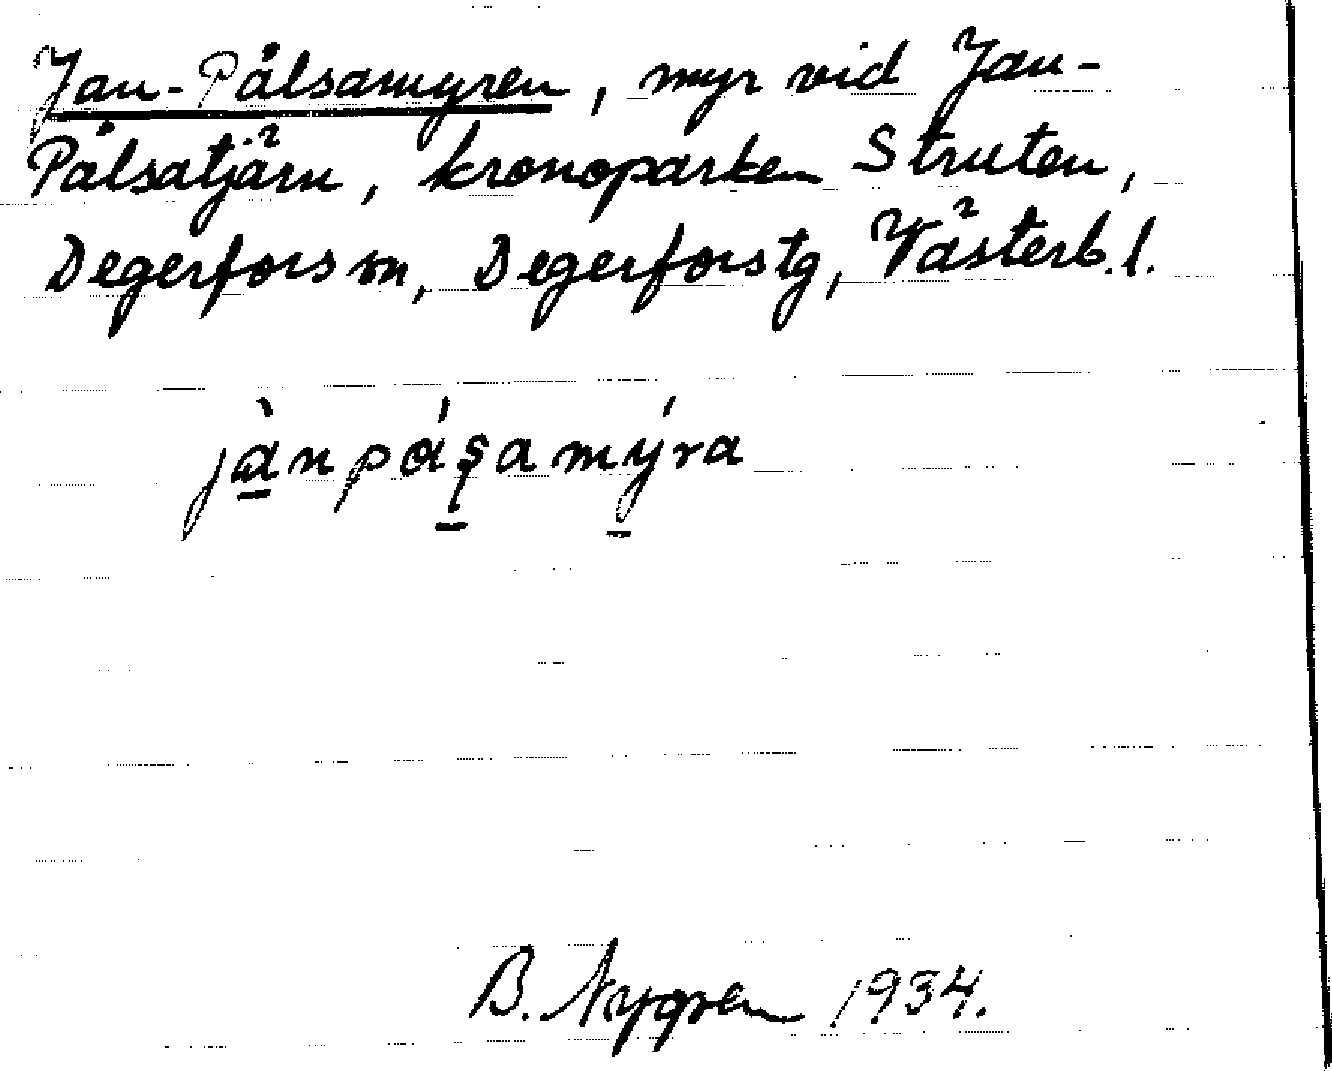 Jan-Pålsamyren, myr vid Jan-
Pålsatjärn, kronoparken Struten,
Degerfors sn, Degerfors tg, Västerb. l.
jànpáʂamýra
B. Nygren 1934.